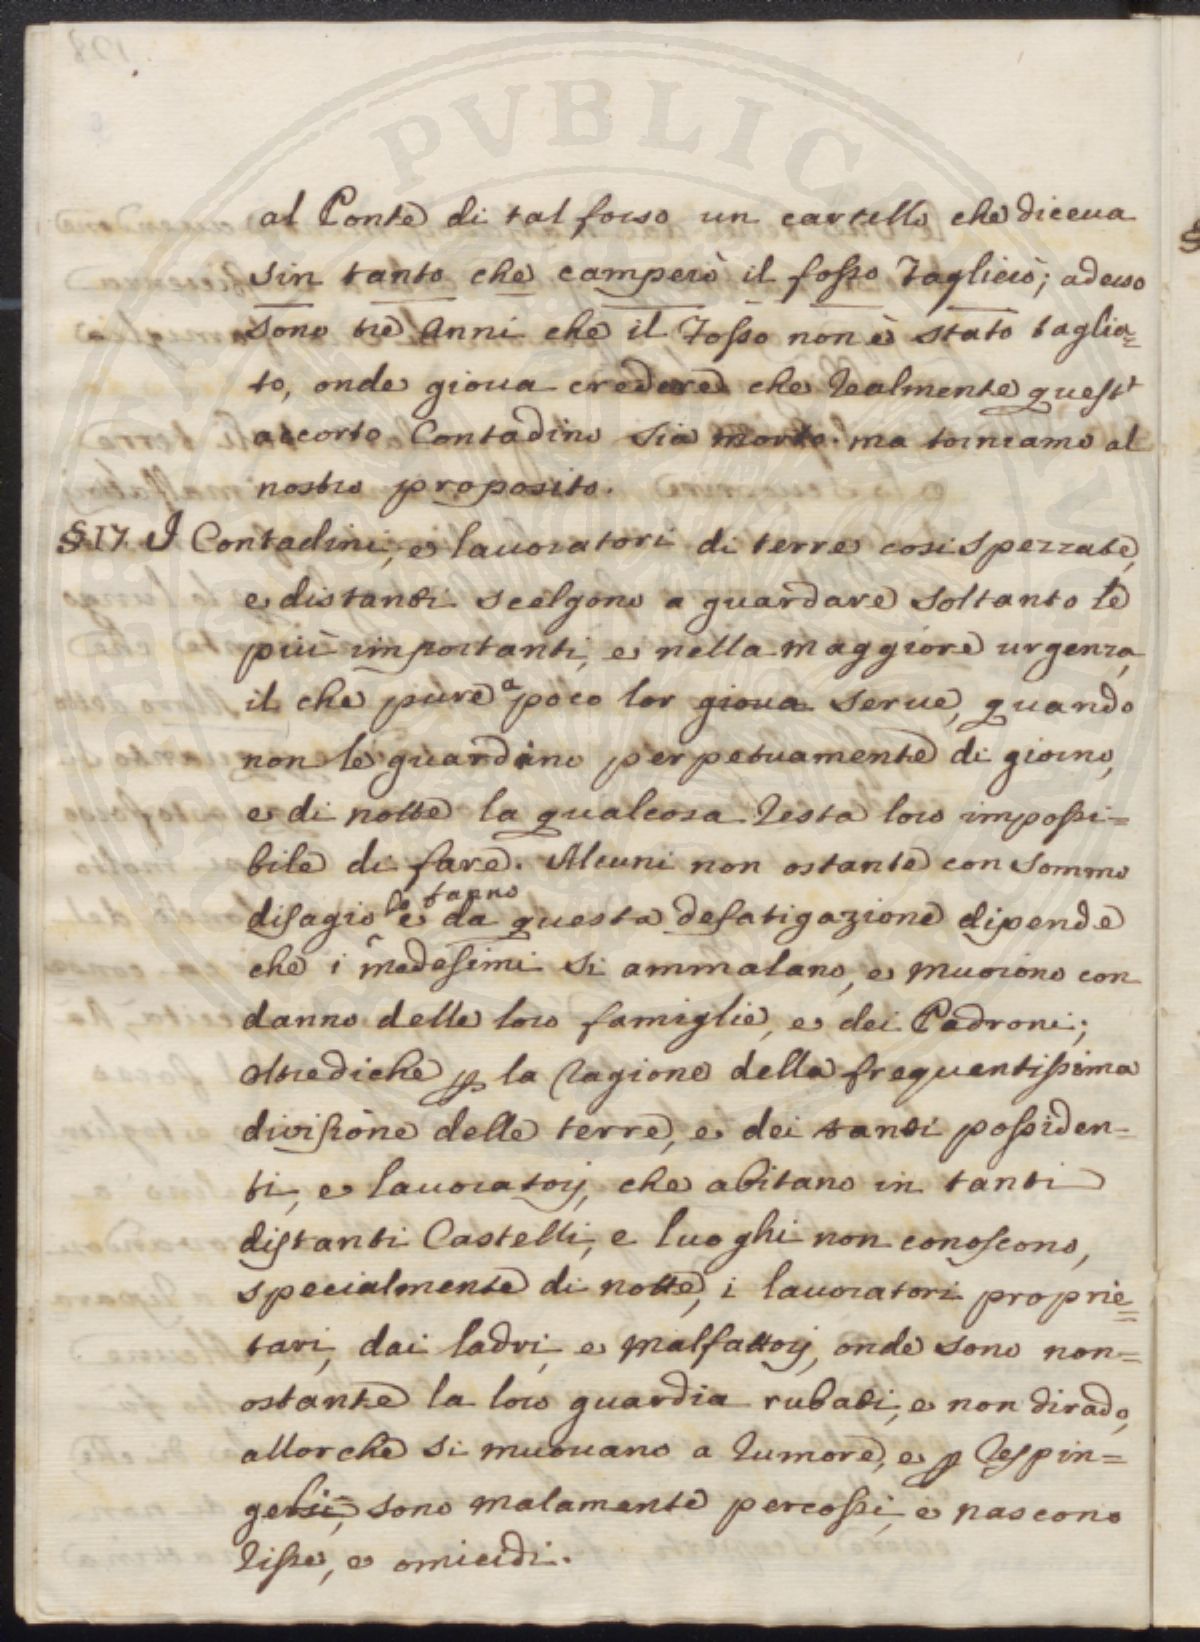 PVBLICA
al Ponte di tal fosso un cartello che diceua
sin tanto che camperò il fosso taglierò; adesso
sono trè Anni che il Fosso non è stato taglia=
to, onde gioua credere che realmente quest'
accorto Contadino sia morto. ma torniamo al
nostro proposito.
§.17. I Contadini, e lauoratori di terre cosi spezzate,
e distanti scelgono a guardare soltanto le
più importanti, e nella maggiore urgenza,
il che pure a poco lor gioua serue, quando
non le guardino perpetuamente di giorno,
e di notte la qualcosa resta loro impossi=
bile di fare. Alcuni non ostante con sommo
disagio lo fanno e da questa defatigazione dipende
che i medesimi si ammalano, e muoiono con
danno delle loro famiglie, e dei Padroni;
oltrediche p la ragione della frequentissima
divisione delle terre, e dei tanti possiden=
ti, e lauoratorj, che abitano in tanti
distanti Castelli, e luoghi non conoscono,
specialmente di notte, i lauoratori proprie=
tari, dai ladri, e malfattorj, onde sono non=
ostante la loro guardia rubati, e non dirado,
allorche si muouano a rumore, e p respin=
gerli, sono malamente percossi, e nascono
risse, e omicidi.